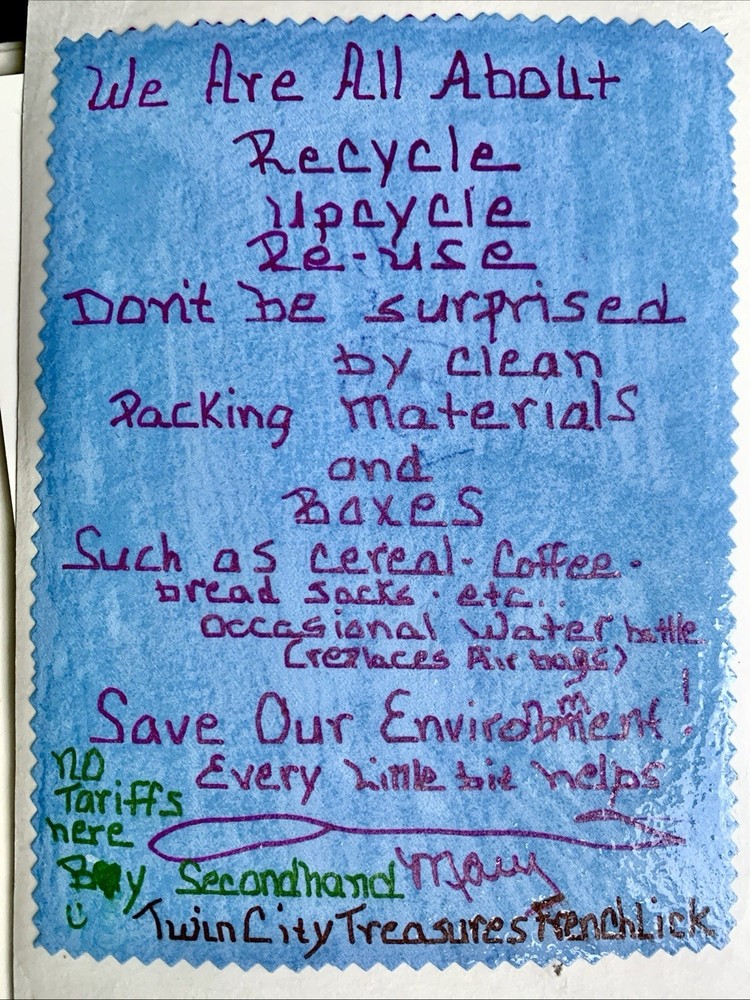 We Are All About
Recycle
Upcycle
Re-use
Don't be surprised
by clean
Packing Materials
and
Boxes
Such as cereal- Coffee-
bread sacks - etc..
occasional Water bottle
(replaces Air bags)
Save Our Environment!
Every Little bit helps
No
Tariffs
here
Buy Secondhand
Mary
TwinCityTreasuresFrenchLick